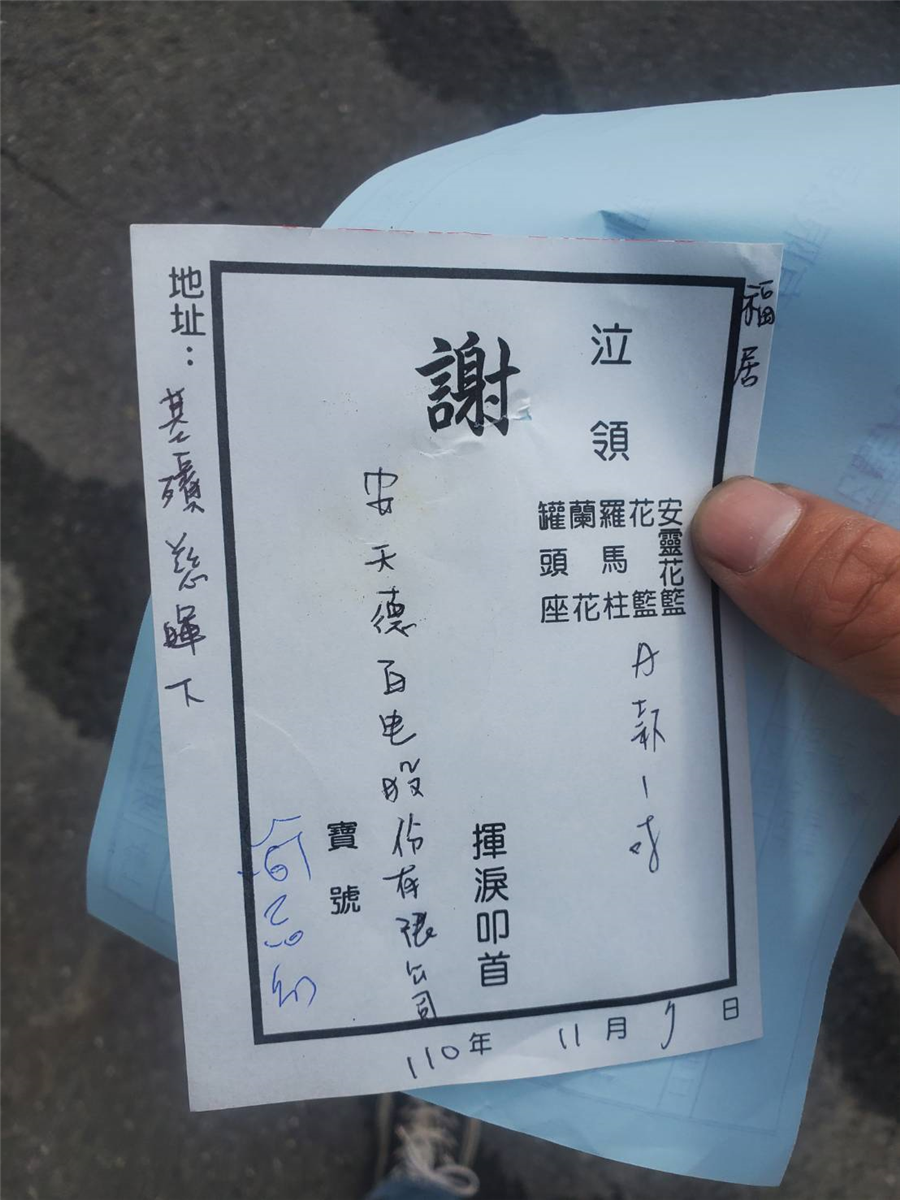 福居
泣領
安靈花籃
花籃
羅馬柱
蘭花
罐頭座
謝
揮淚叩首
安天德百电股份有限公司
寶號
110年 11月 日
地址：基殯慈暉下